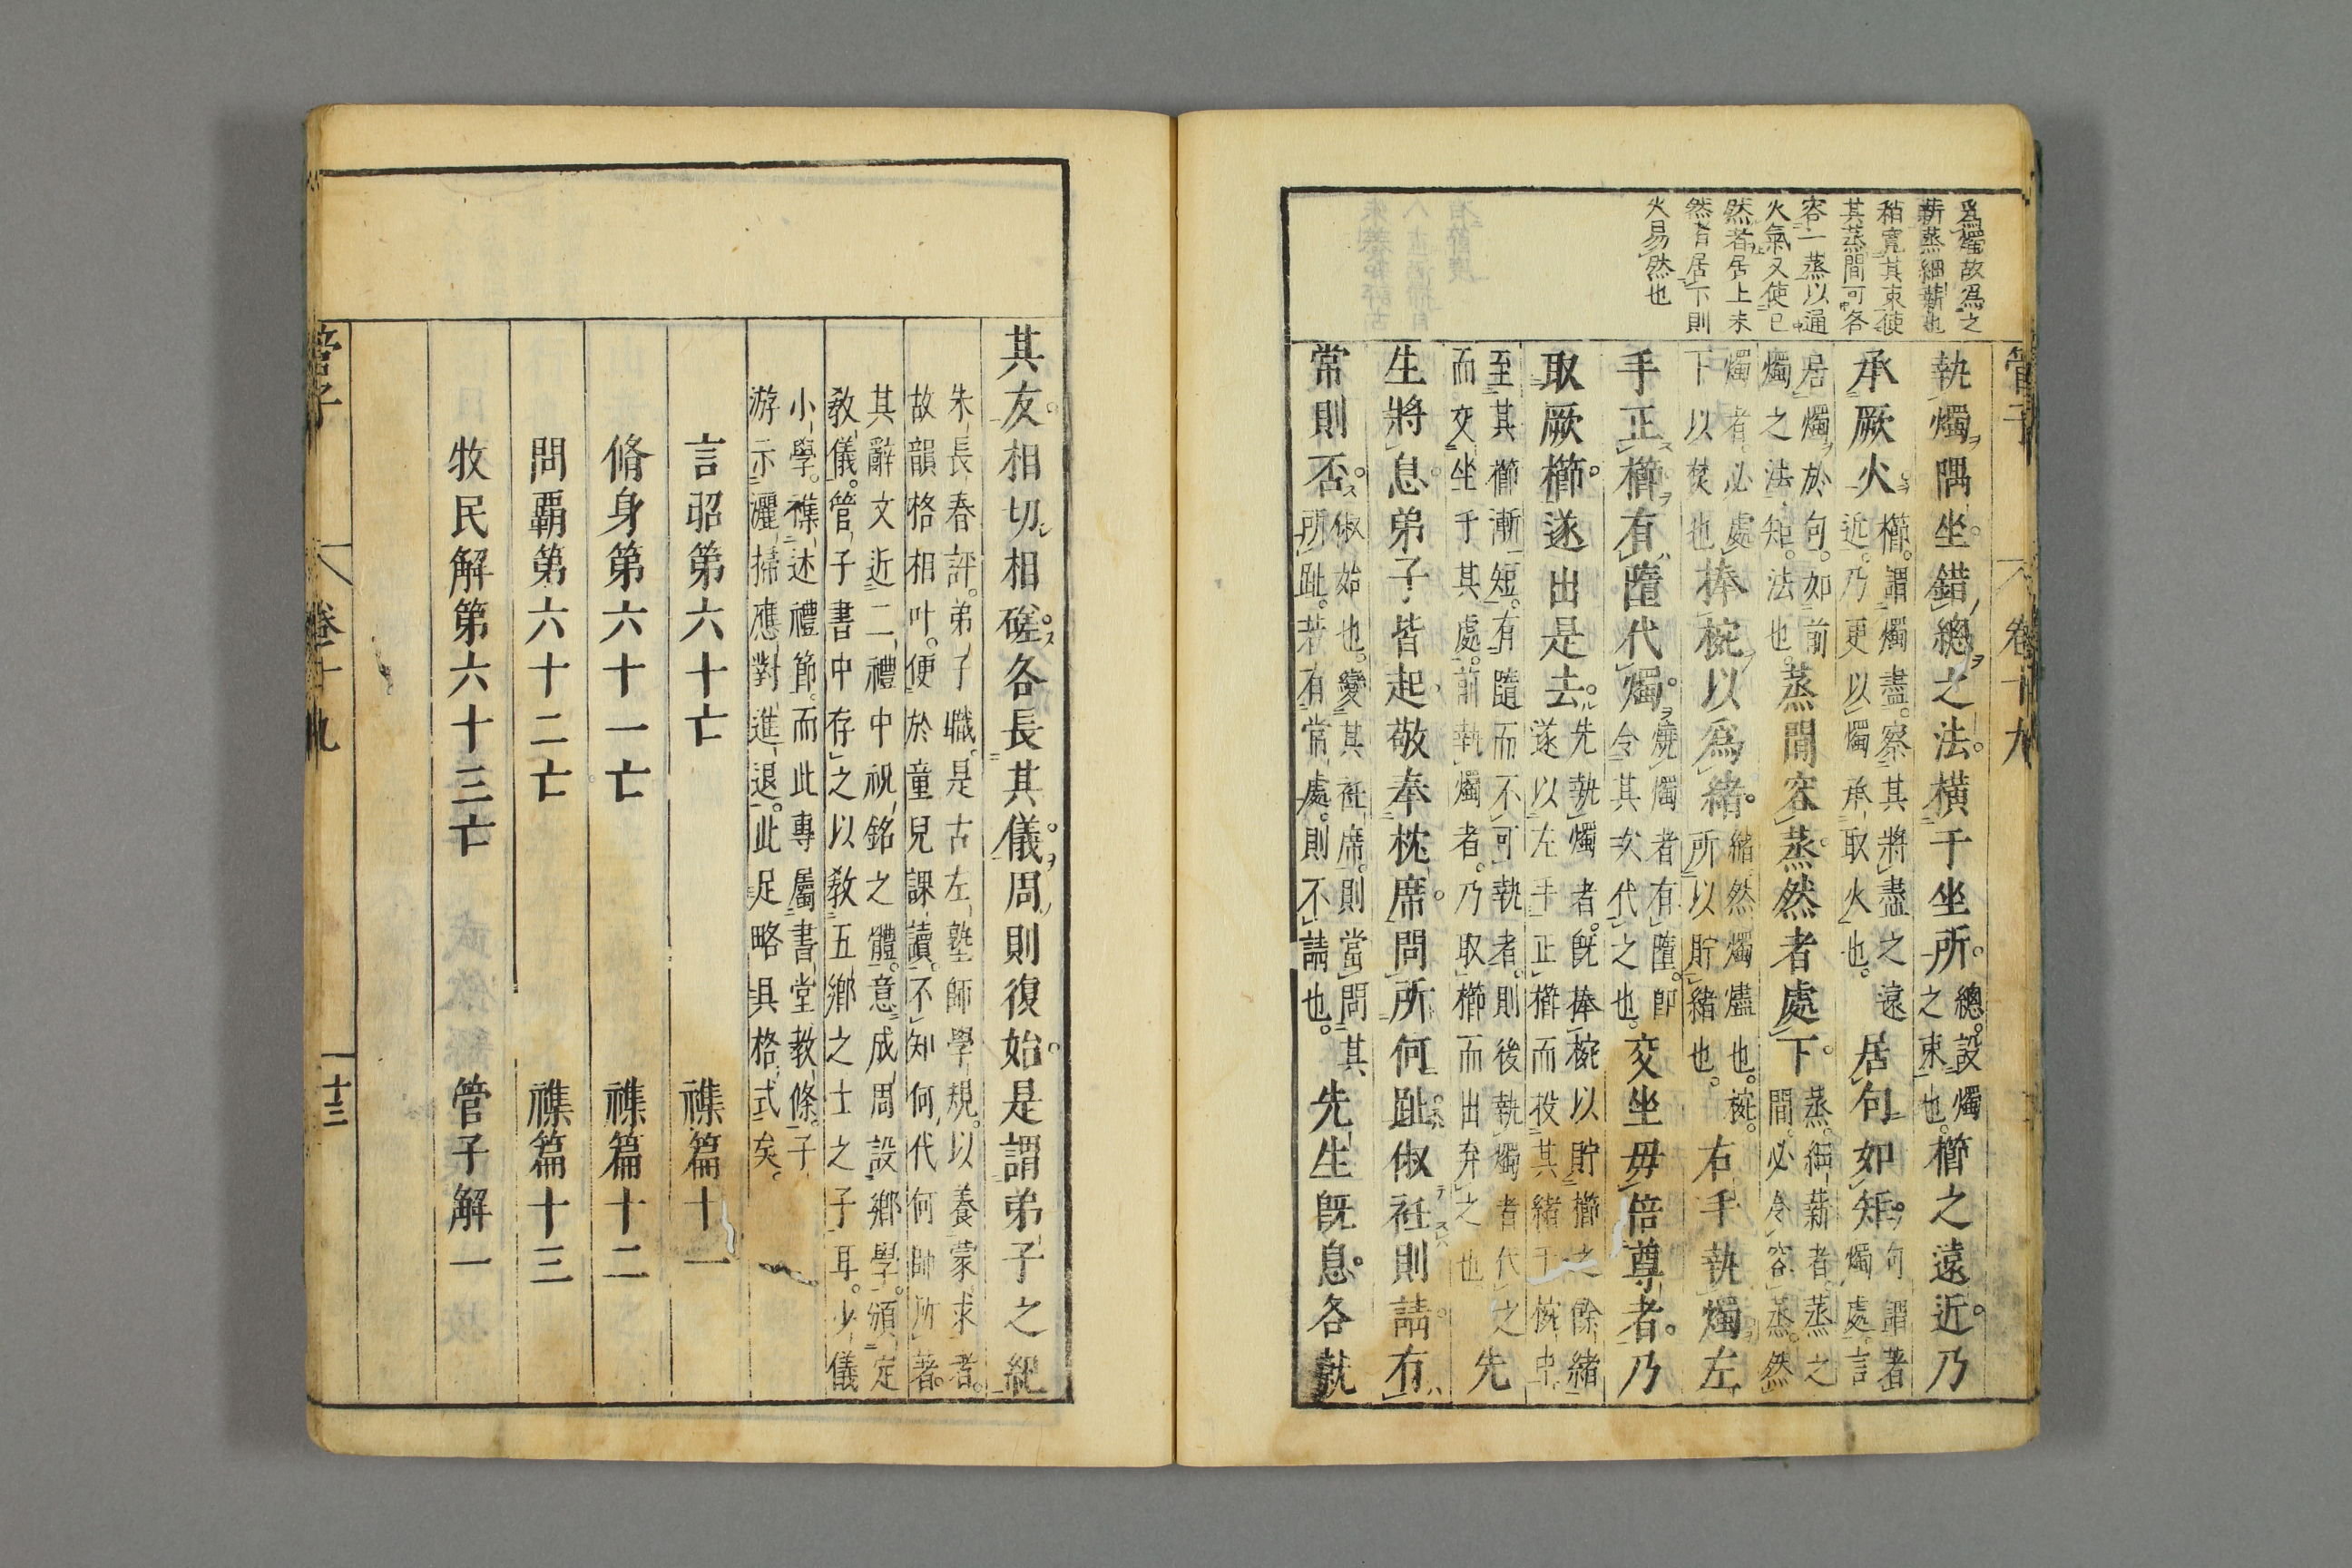 爲燭故爲之
薪蒸細薪也
稍寛其束使
其蒸間可各
容一蒸以通
火氣又使已
然者居上未
然者居下則
火易然也
管子 卷十九
執燭隅坐錯總之法橫于坐所總設燭
之束也櫛之遠近乃
承厥火櫛謂燭盡察其將盡之遠
近乃更以燭承取火也居句如矩句謂著
燭處言
居燭於句如前
燭之法矩法也蒸間容蒸然者處下蒸細薪者蒸之
間必令容蒸然
燭者必處
下以焚也捧椀以爲緖緖然燭燼也椀
所以貯緖也右手執燭左
手正櫛有墮代燭燒燭者有墮卽
令其次代之也交坐毋倍尊者乃
取厥櫛遂出是去先執燭者既捧椀以貯櫛之餘緖
遂以左手正櫛而投其緖于椀中
至其櫛漸短有隨而不可執者則後執燭者代之
而交坐于其處前執燭者乃取櫛而出弃之也先
生將息弟子皆起敬奉枕席問所何趾俶衽則請有
常則否俶始也變其衽席則當問其
所趾若有常處則不請也先生既息各就
其友相切相磋各長其儀周則復始是謂弟子之紀
朱長春評弟子職是古左塾師學規以養蒙求者
故韻格相叶便於童兒課讀不知何代何師所著
其辭文近二禮中祝銘之體意成周設鄕學頒定
敎儀管子書中存之以敎五鄕之士之子耳少儀
小學襍述禮節而此專屬書堂教條子
游示灑掃應對進退此足略具格式矣
言昭第六十亡 襍篇十一
脩身第六十一亡 襍篇十二
問霸第六十二亡 襍篇十三
牧民解第六十三亡 管子解一
管子 卷十九 十三